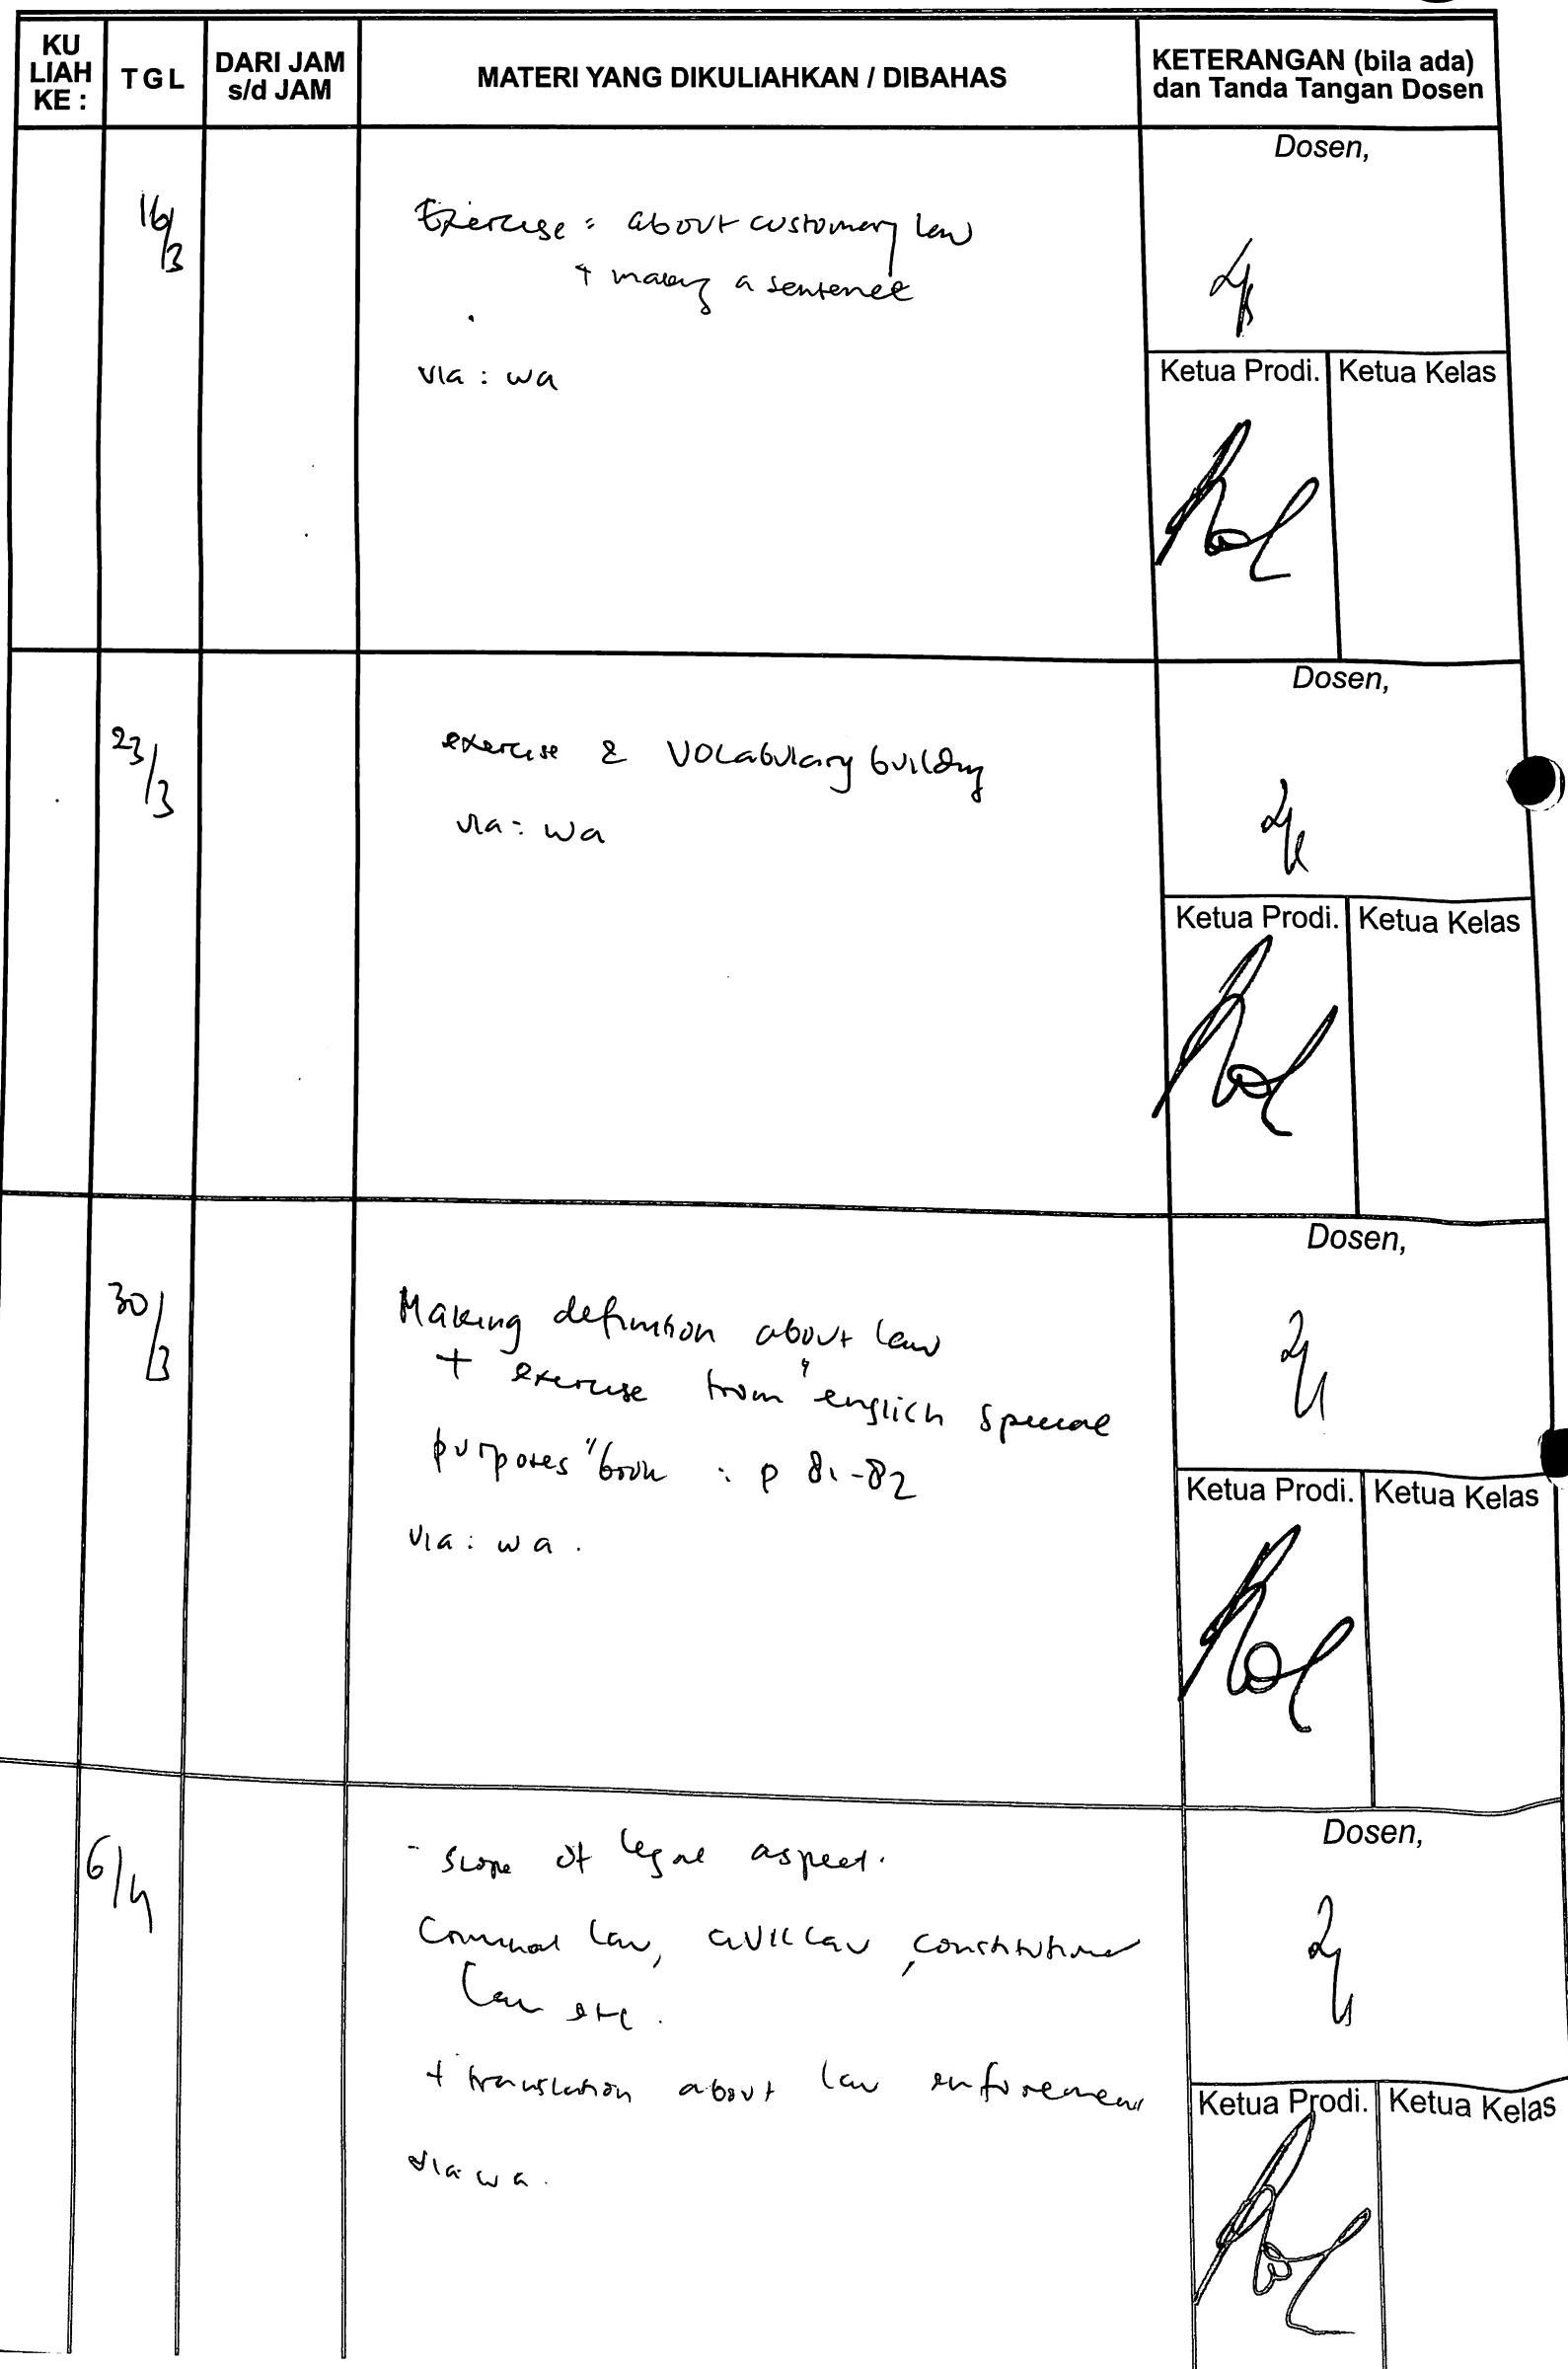 KU LIAH KE :
TGL
DARI JAM s/d JAM
MATERI YANG DIKULIAHKAN / DIBAHAS
KETERANGAN (bila ada) dan Tanda Tangan Dosen
Dosen,
16/3
Exercise : about customary law
+ making a sentence
via : wa
Ketua Prodi.
Ketua Kelas
Dosen,
23/3
exercise & vocabulary building
via : wa
Ketua Prodi.
Ketua Kelas
Dosen,
30/3
Making definition about law
+ exercise from "english special
purposes" book : p 81-82
via : wa .
Ketua Prodi.
Ketua Kelas
Dosen,
6/4
- scope of legal aspect.
law, civil law, constitutional
law etc.
+ translation about law enforcement
via wa.
Ketua Prodi.
Ketua Kelas